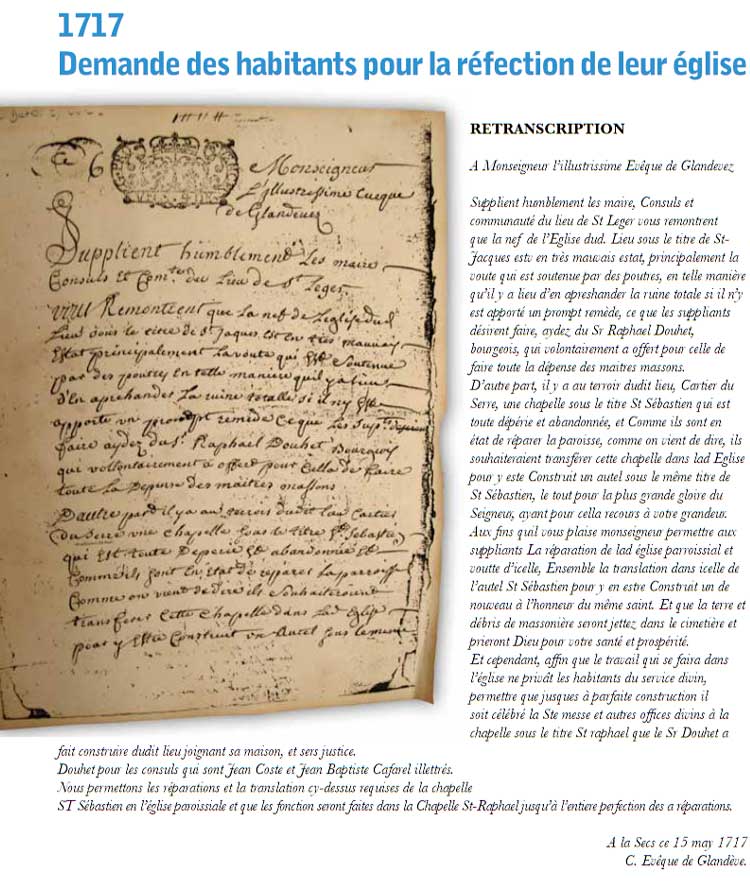 1717
Demande des habitants pour la réfection de leur église
Monseigneur
L'Illustrissime Eveque
de Glandevez
Supplient humblement Les maire
Consuls Et Com.te du Lieu de St Leger
vous Remontrent que La nef de Leglise dud
Lieu sous le titre de St Jaques Est en tres mauvais
Estat principalement La voute qui Est soutenue
par des poutres En telle maniere quil ya lieu
d'En aprehander La ruine totalle si il ny Est
apporte un prompt remede Ce que Les sup.ts desirent
faire aydez du Sr Raphael Douhet Bourgeois
qui vollontairement a offert pour Cella de faire
toute La Depense des maitres massons
D'autre part il y a au terroir dudit Lieu Cartier
du Serre une Chapelle sous le titre St Sebastien
qui Est toute Deperie Et abandonnée Et
Comme ils sont En Etat de reparer La parroisse
Comme on vient de dire ils souhaiteroient
transferer Cette Chapelle dans Lad Eglise
pour y Estre Construit un Autel sous le meme
RETRANSCRIPTION
A Monseigneur l'illustrissime Evêque de Glandevez
Supplient humblement les maire, Consuls et
communauté du lieu de St Leger vous remontrent
que la nef de l'Eglise dud. Lieu sous le titre de St-
Jacques estv en très mauvais estat, principalement la
voute qui est soutenue par des poutres, en telle manière
qu'il y a lieu d'en apreshander la ruine totale si il n'y
est apporté un prompt remède, ce que les suppliants
désirent faire, aydez du Sr Raphael Douhet,
bourgeois, qui volontairement a offert pour celle de
faire toute la dépense des maitres massons.
D'autre part, il y a au terroir dudit lieu, Cartier du
Serre, une chapelle sous le titre St Sébastien qui est
toute dépérie et abandonnée, et Comme ils sont en
état de réparer la paroisse, comme on vient de dire, ils
souhaiteraient transférer cette chapelle dans lad Eglise
pour y este Construit un autel sous le même titre de
St Sébastien, le tout pour la plus grande gloire du
Seigneur, ayant pour cella recours à votre grandeur.
Aux fins quil vous plaise monseigneur permettre aux
suppliants La réparation de lad église parroissial et
voutte d'icelle, Ensemble la translation dans icelle de
l'autel St Sébastien pour y en estre Construit un de
nouveau à l'honneur du même saint. Et que la terre et
débris de massonière seront jettez dans le cimetière et
prieront Dieu pour votre santé et prospérité.
Et cependant, affin que le travail qui se faira dans
l'église ne privât les habitants du service divin,
permettre que jusques à parfaite construction il
soit célébré la Ste messe et autres offices divins à la
chapelle sous le titre St raphael que le Sr Douhet a
fait construire dudit lieu joignant sa maison, et sers justice.
Douhet pour les consuls qui sont Jean Coste et Jean Baptiste Cafarel illettrés.
Nous permettons les réparations et la translation cy-dessus requises de la chapelle
ST Sébastien en l'église paroissiale et que les fonction seront faites dans la Chapelle St-Raphael jusqu'à l'entiere perfection des a réparations.
A la Secs ce 15 may 1717
C. Evêque de Glandève.